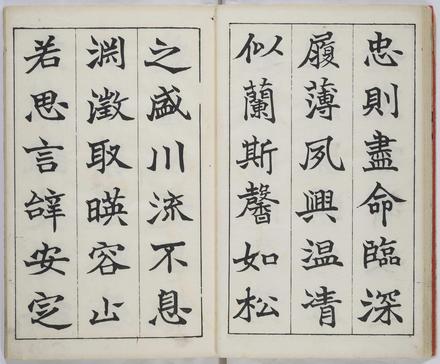 忠則盡命臨深
履薄夙興温凊
似蘭斯馨如松
之盛川流不息
渊澂取暎容止
若思言辝安定